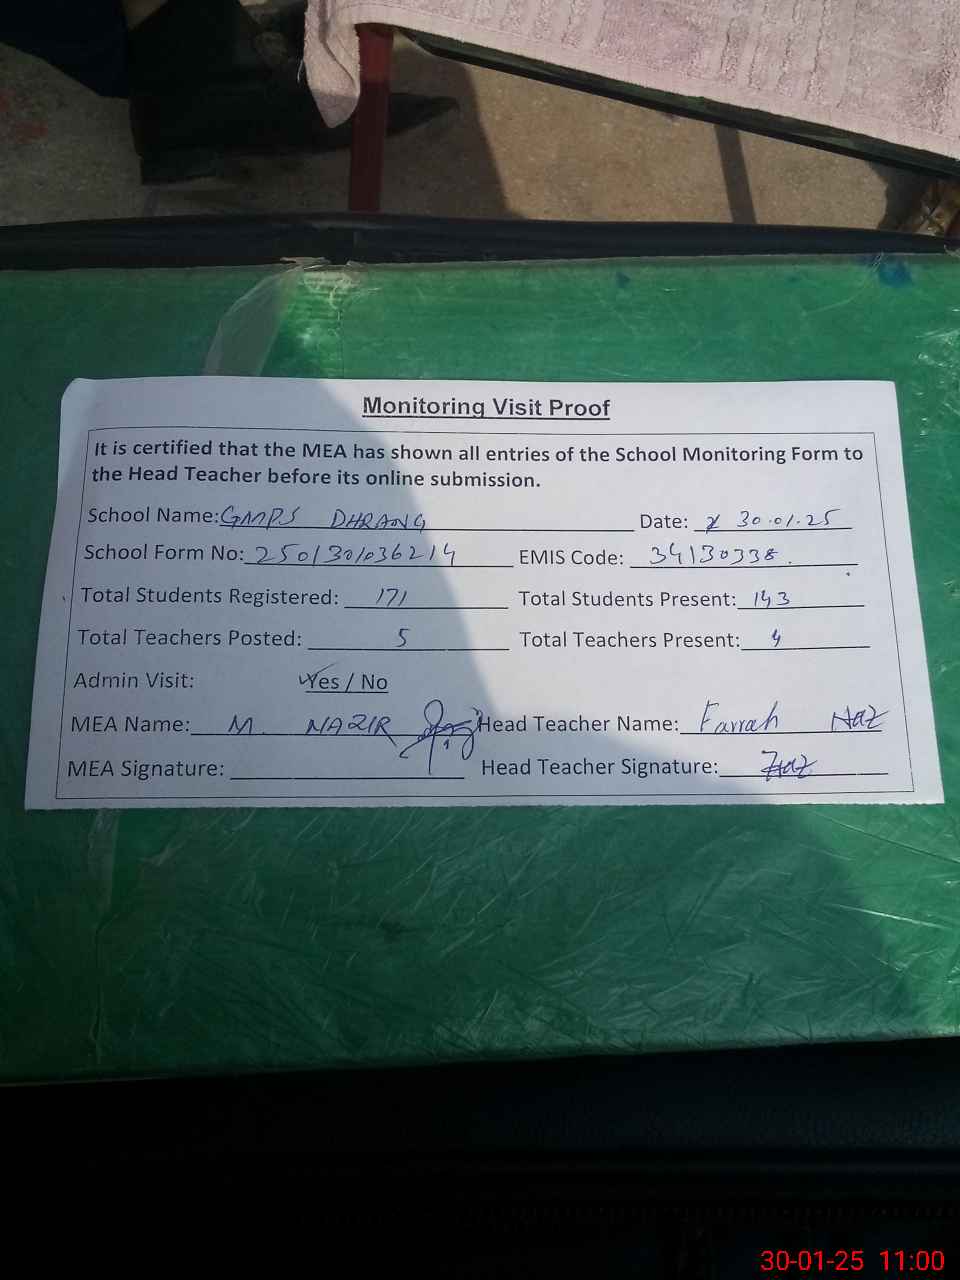 Monitoring Visit Proof
It is certified that the MEA has shown all entries of the School Monitoring Form to
the Head Teacher before its online submission.
School Name: GMPS DHRANG Date: 30.01.25
School Form No: 2501301036214 EMIS Code: 34130338
Total Students Registered: 171 Total Students Present: 143
Total Teachers Posted: 5 Total Teachers Present: 4
Admin Visit: Yes / No
MEA Name: M. NAZIR Head Teacher Name: Farrah Naz
MEA Signature: Head Teacher Signature:
30-01-25 11:00